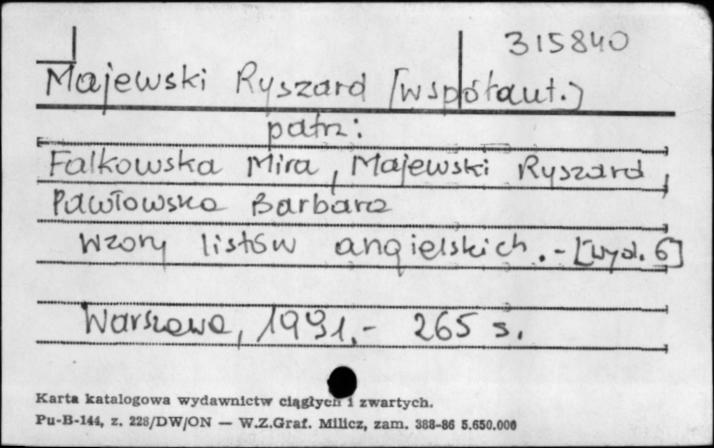 315840
Majewski Ryszard [współaut.)
patrz:
Falkowska Mira, Majewski Ryszard,
Pawłowska Barbara
Wzory listów angielskich. - [wyd. 6]
Warszawa, 1991, - 265 s.
Karta katalogowa wydawnictw ciągłych i zwartych.
Pu-B-144, z. 228/DW/ON — W.Z.Graf. Milicz, zam. 388-86 5.650.000